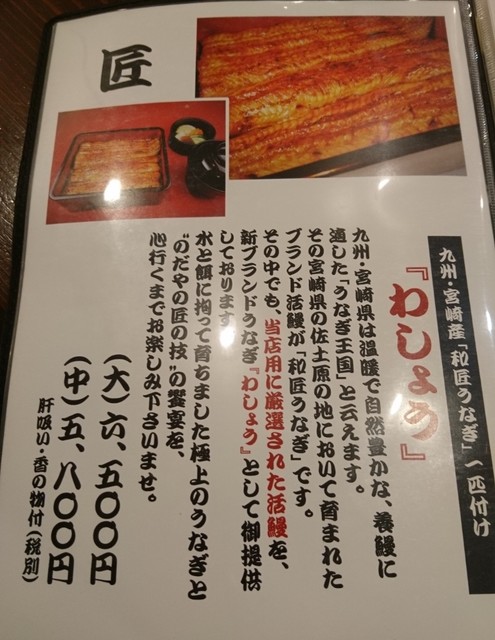 匠
九州・宮崎産「和匠うなぎ」一匹付け
『わしょう』
九州・宮崎県は温暖で自然豊かな、養鰻に
適した「うなぎ王国」と云えます。
その宮崎県の佐土原の地において育まれた
ブランド活鰻が「和匠うなぎ」です。
その中でも、当店用に厳選された活鰻を、
新ブランドうなぎ『わしょう』として御提供
しております。
水と餌に拘って育ちました極上のうなぎと
“のだやの匠の技”の饗宴を、
心行くまでお楽しみ下さいませ。
(大)六、五〇〇円
(中)五、八〇〇円
肝吸い・香の物付(税別)